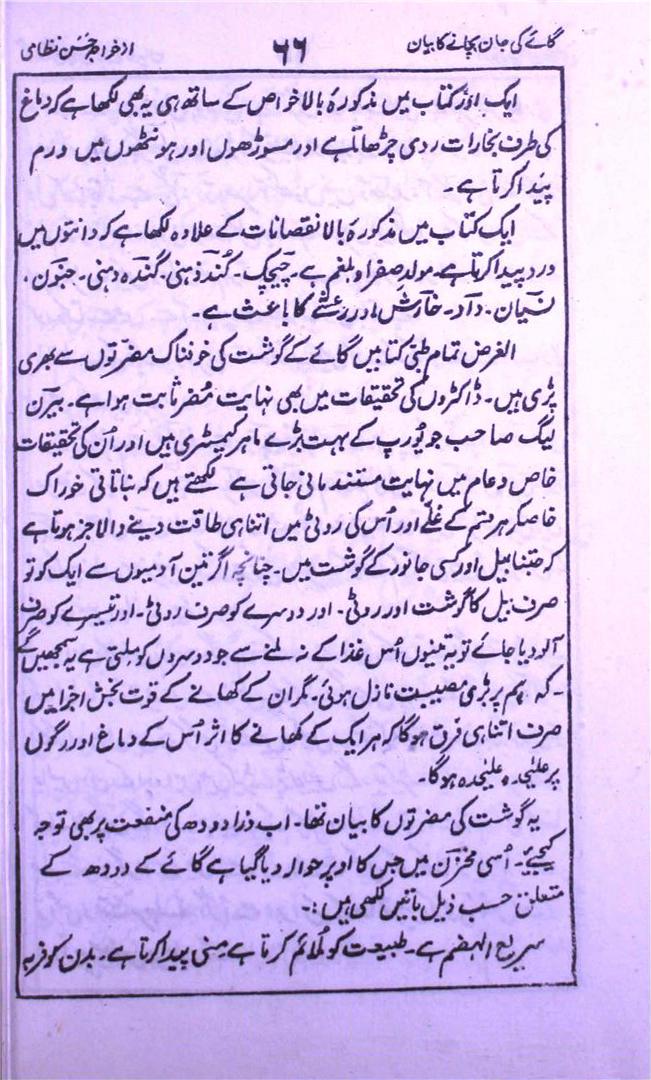 گائے کی جان بچانے کا بیان ۶۶ از خواجہ حسن نظامی
ایک اور کتاب میں مذکورۂ بالا خواص کے ساتھ ہی یہ بھی لکھا ہے کہ دماغ
کی طرف بخارات ردی چڑھاتا ہے اور مسوڑھوں اور ہونٹھوں میں ورم
پیدا کرتا ہے۔
ایک کتاب میں مذکورۂ بالا نقصانات کے علاوہ لکھا ہے کہ دانتوں میں
درد پیدا کرتا ہے۔ مولد صفرا و بلغم ہے۔ چیچک۔ کُند ذہنی۔ گندہ دہنی۔ جنون،
نسیان۔ داد۔ خارش اور رعشے کا باعث ہے۔
الغرض تمام طبی کتابیں گائے کے گوشت کی خوفناک مضرتوں سے بھری
پڑی ہیں۔ ڈاکٹروں کی تحقیقات میں بھی نہایت مُضر ثابت ہوا ہے۔ بیرن
لیگ صاحب جو یُورپ کے بہت بڑے ماہر کیمسٹری ہیں اور اُن کی تحقیقات
خاص و عام میں نہایت مستند مانی جاتی ہے لکھتے ہیں کہ نباتاتی خوراک
خاصکر ہر قسم کے غلّے اور اُس کی روٹی میں اتنا ہی طاقت دینے والا جز ہوتا ہے
کہ جتنا بیل اور کسی جانور کے گوشت میں۔ چنانچہ اگر تین آدمیوں سے ایک کو تو
صرف بیل کا گوشت اور روٹی۔ اور دوسرے کو صرف روٹی۔ اور تیسرے کو صرف
آلو دیا جائے تو یہ تینوں اُس غذا کے نہ ملنے سے جو دوسروں کو ملتی ہے یہ سمجھیں گے
۔کہ ہم پر بڑی مصیبت نازل ہوئی۔ مگر ان کے کھانے کے قوت بخش اجزا میں
صرف اتنا ہی فرق ہوگا کہ ہر ایک کے کھانے کا اثر اُس کے دماغ اور رگوں
پر علیٰحدہ علیٰحدہ ہوگا۔
یہ گوشت کی مضرتوں کا بیان تھا۔ اب ذرا دودھ کی منفعت پر بھی توجہ
کیجئے۔ اُسی مخزن میں جس کا اوپر حوالہ دیا گیا ہے گائے کے دودھ کے
متعلق حسب ذیل باتیں لکھی ہیں:۔
سریع الہضم ہے۔ طبیعت کو مُلائم کرتا ہے مِنی پیدا کرتا ہے۔ بدن کو فربہ